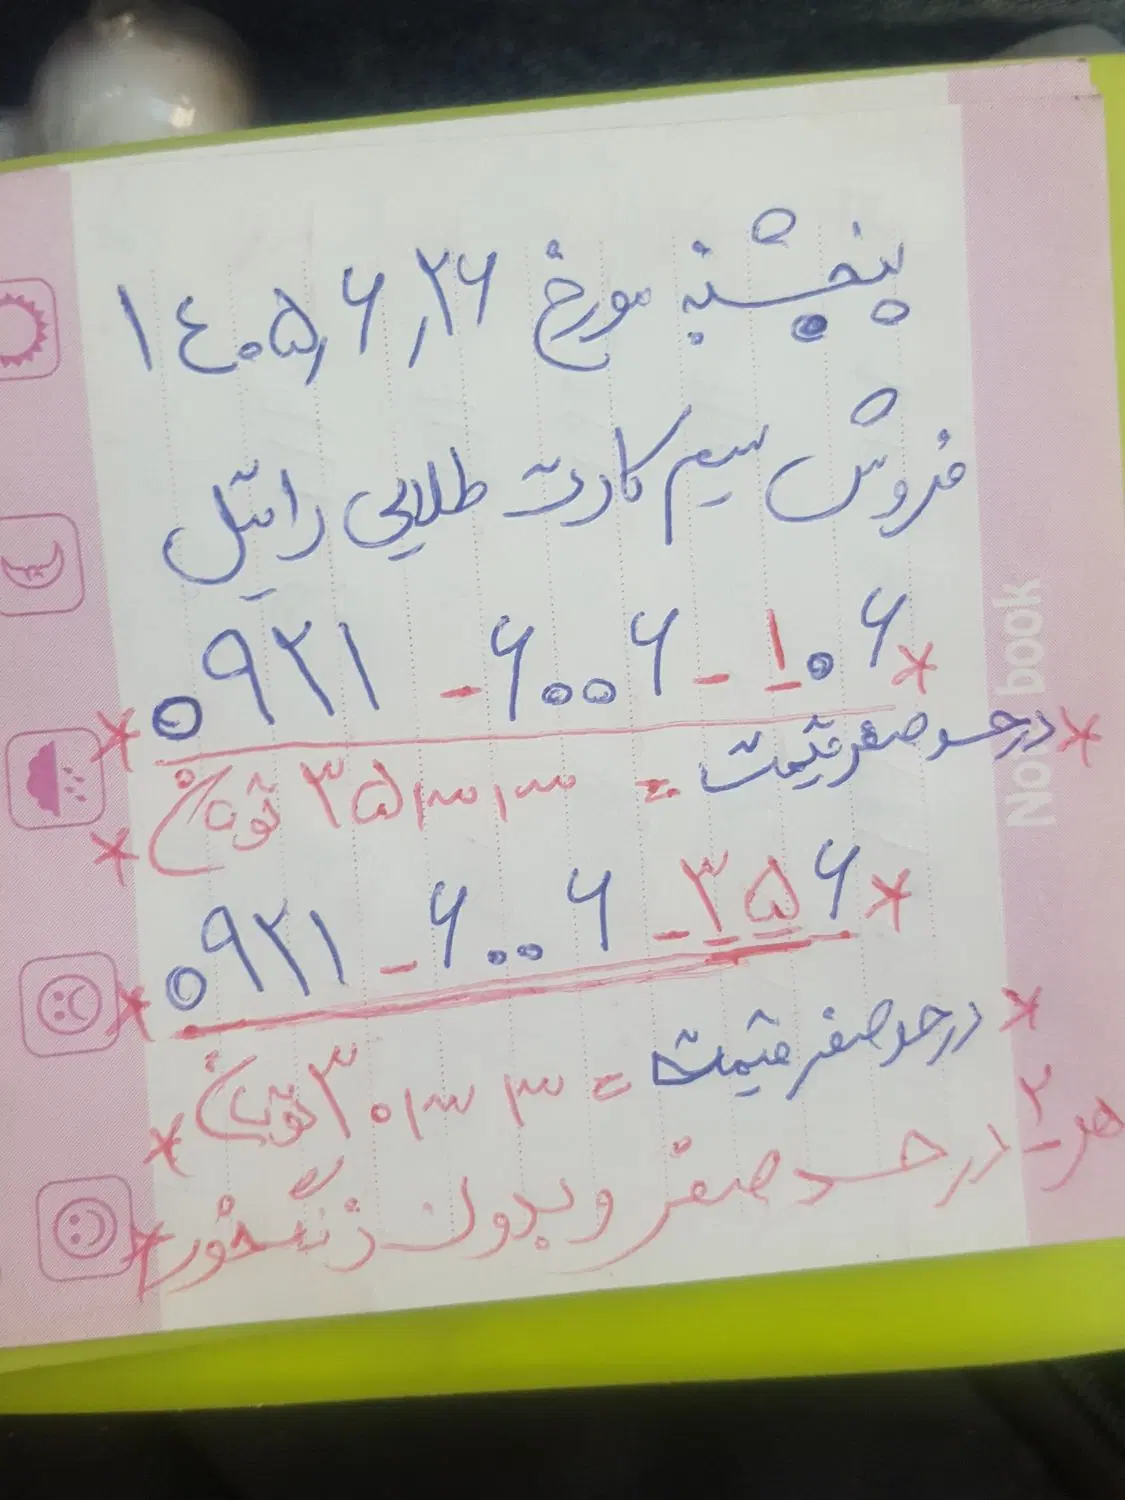 پنجشنبه مورخ ۱۴۰۵٫۶٫۲۶
فروش سیم کارت طلایی رایتل
۰۹۲۱ - ۶۰۰۶ - ۱۰۶
در حد صفر قیمت =
۳۵ تومان
۰۹۲۱ - ۶۰۰۶ - ۳۵۶
در حد صفر قیمت =
۳۰ تومان
هر ۲ در حد صفر و بدون زنگ خور
Note book